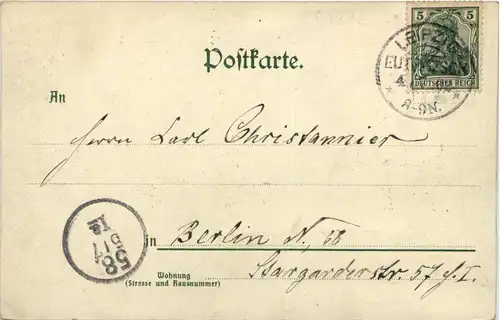 5 5
DEUTSCHES REICH
LEIPZIG
EUTRITZSCH
4.
8-9N.
Postkarte.
An
Herrn Carl Christannier
58
5 1 1
in Berlin N, 58
Wohnung
(Strasse und Hausnummer)
Stargarderstr. 57 I.